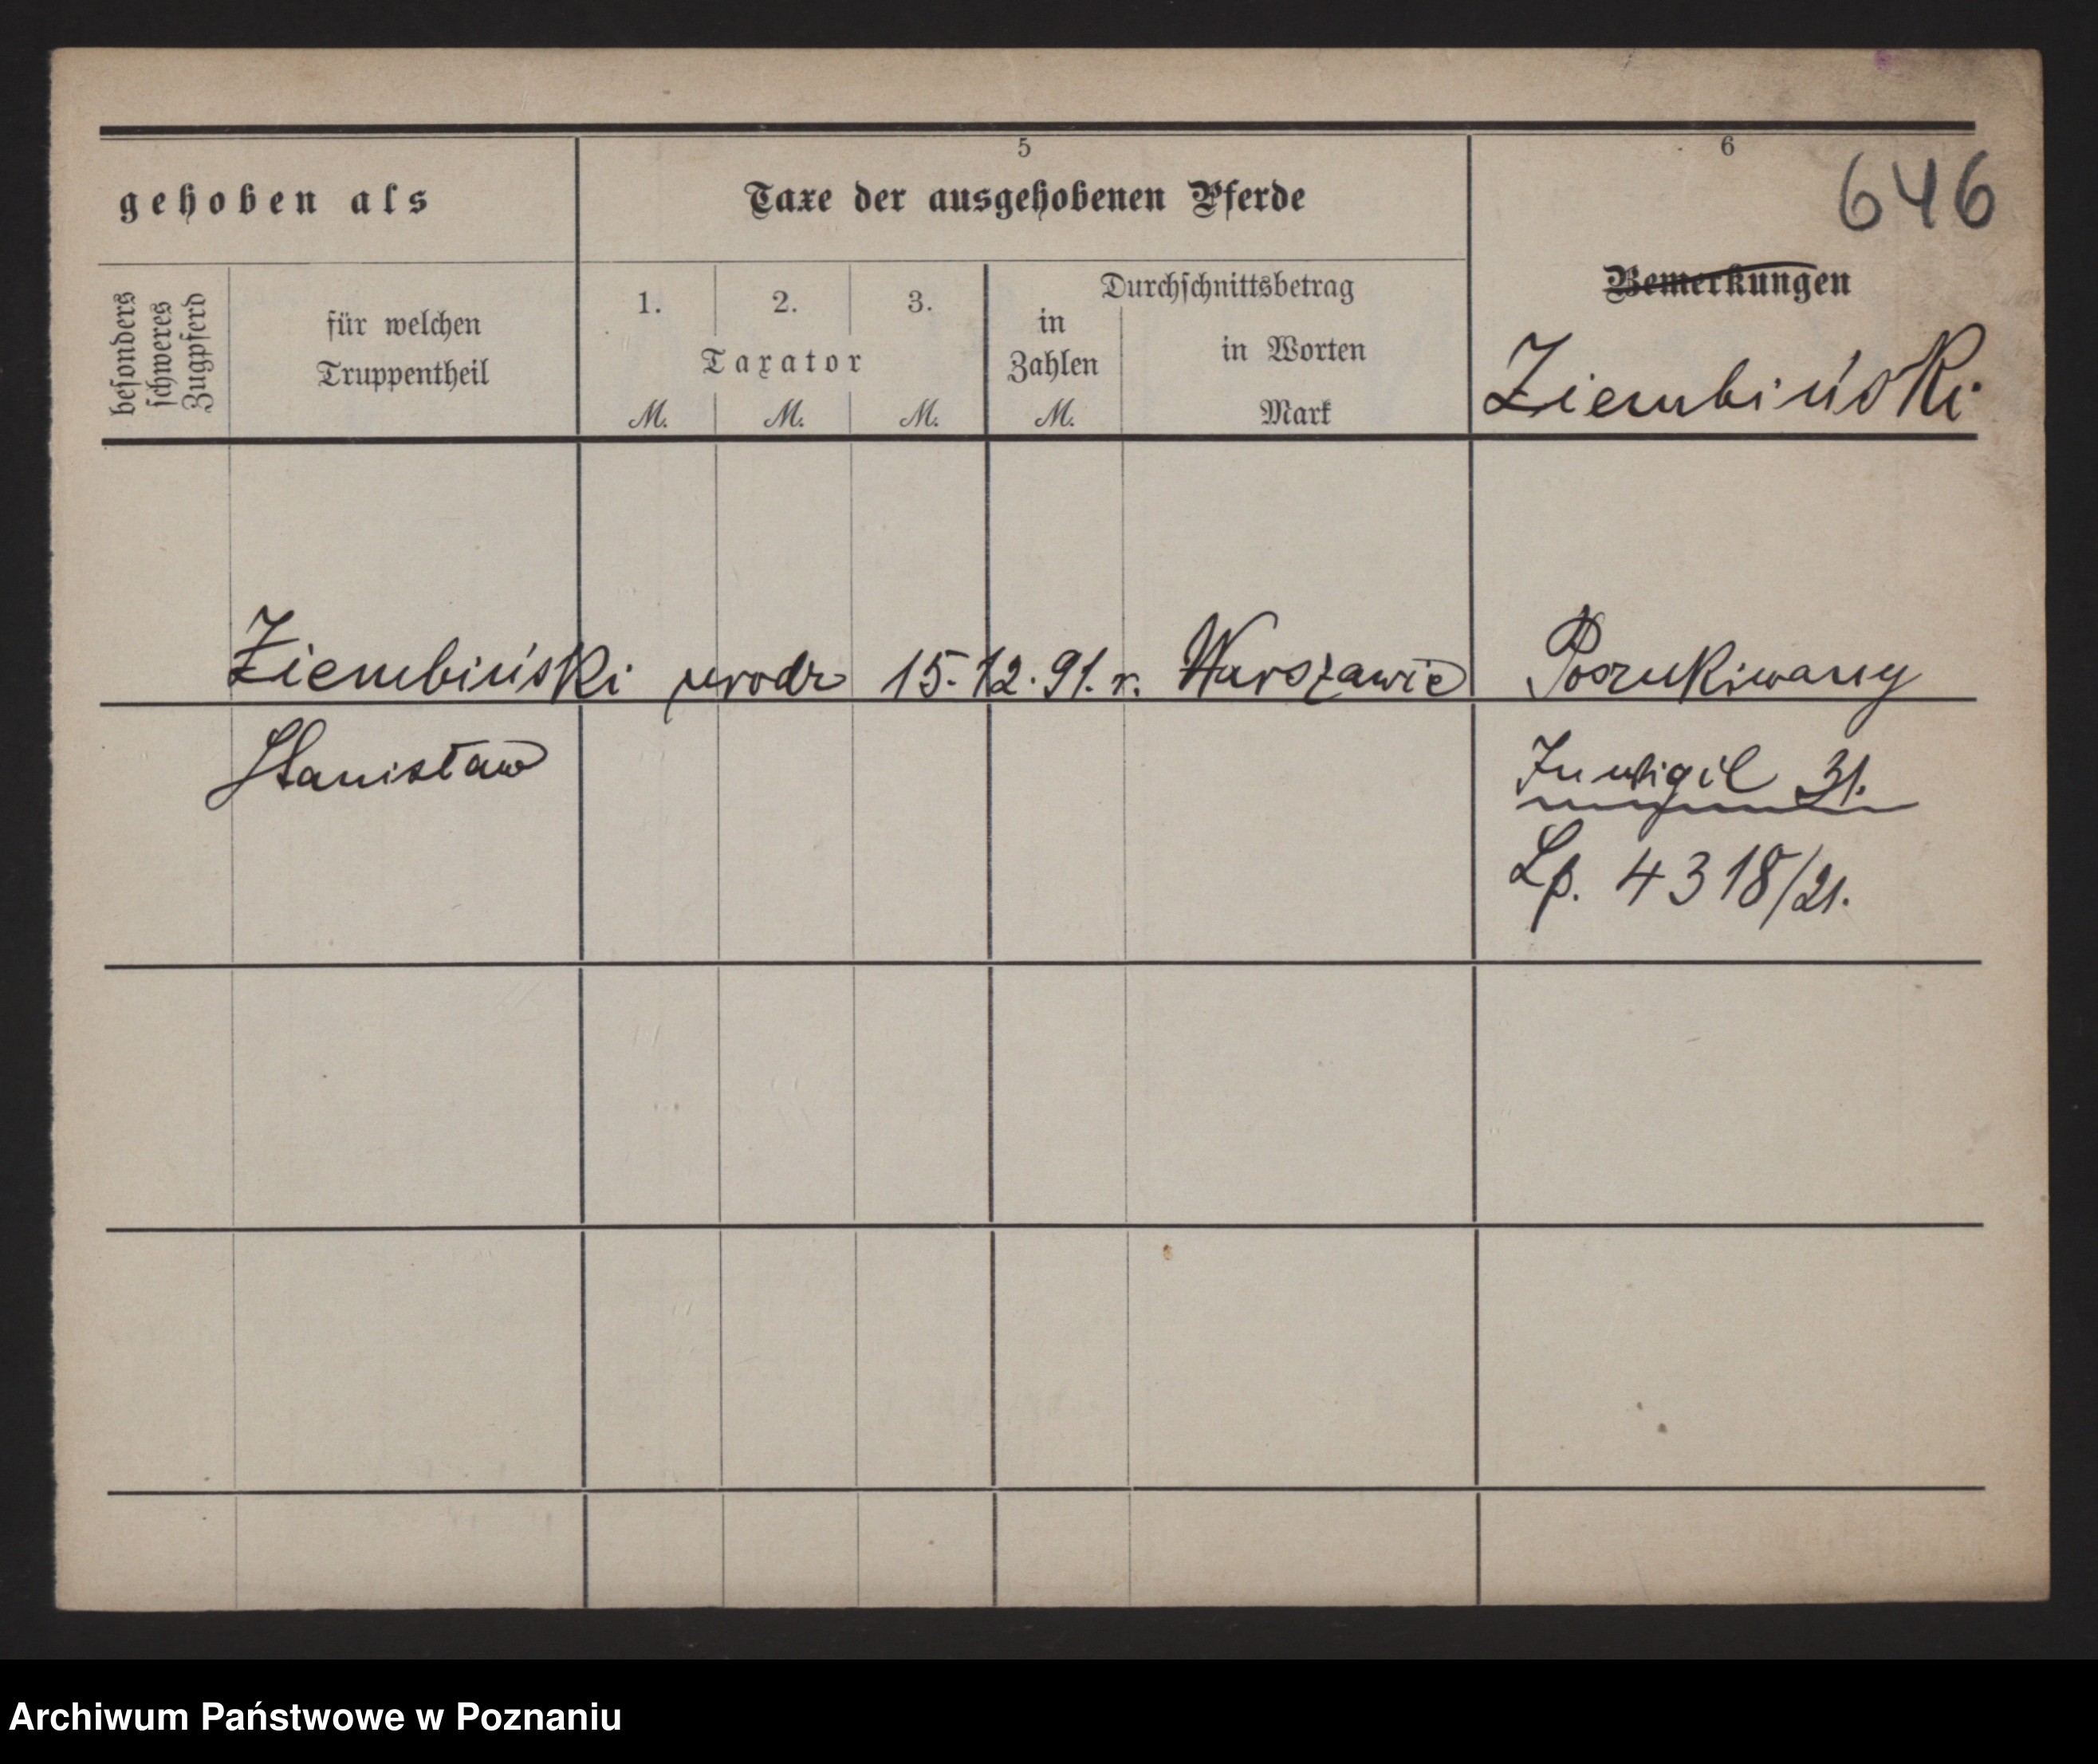 5
6
646
gehoben als
Taxe der ausgehobenen Pferde
Bemerkungen
besonders
schweres
Zugpferd
für welchen
Truppentheil
1. 2. 3.
Taxator
M. M. M.
Durchschnittsbetrag
in
Zahlen
M.
in Worten
Mark
Ziembiński
Ziembiński urodz 15.12.91.r. Warszawie Poszukiwany
Stanisław
Inwigil 31.
Lp. 4318/21.
Archiwum Państwowe w Poznaniu